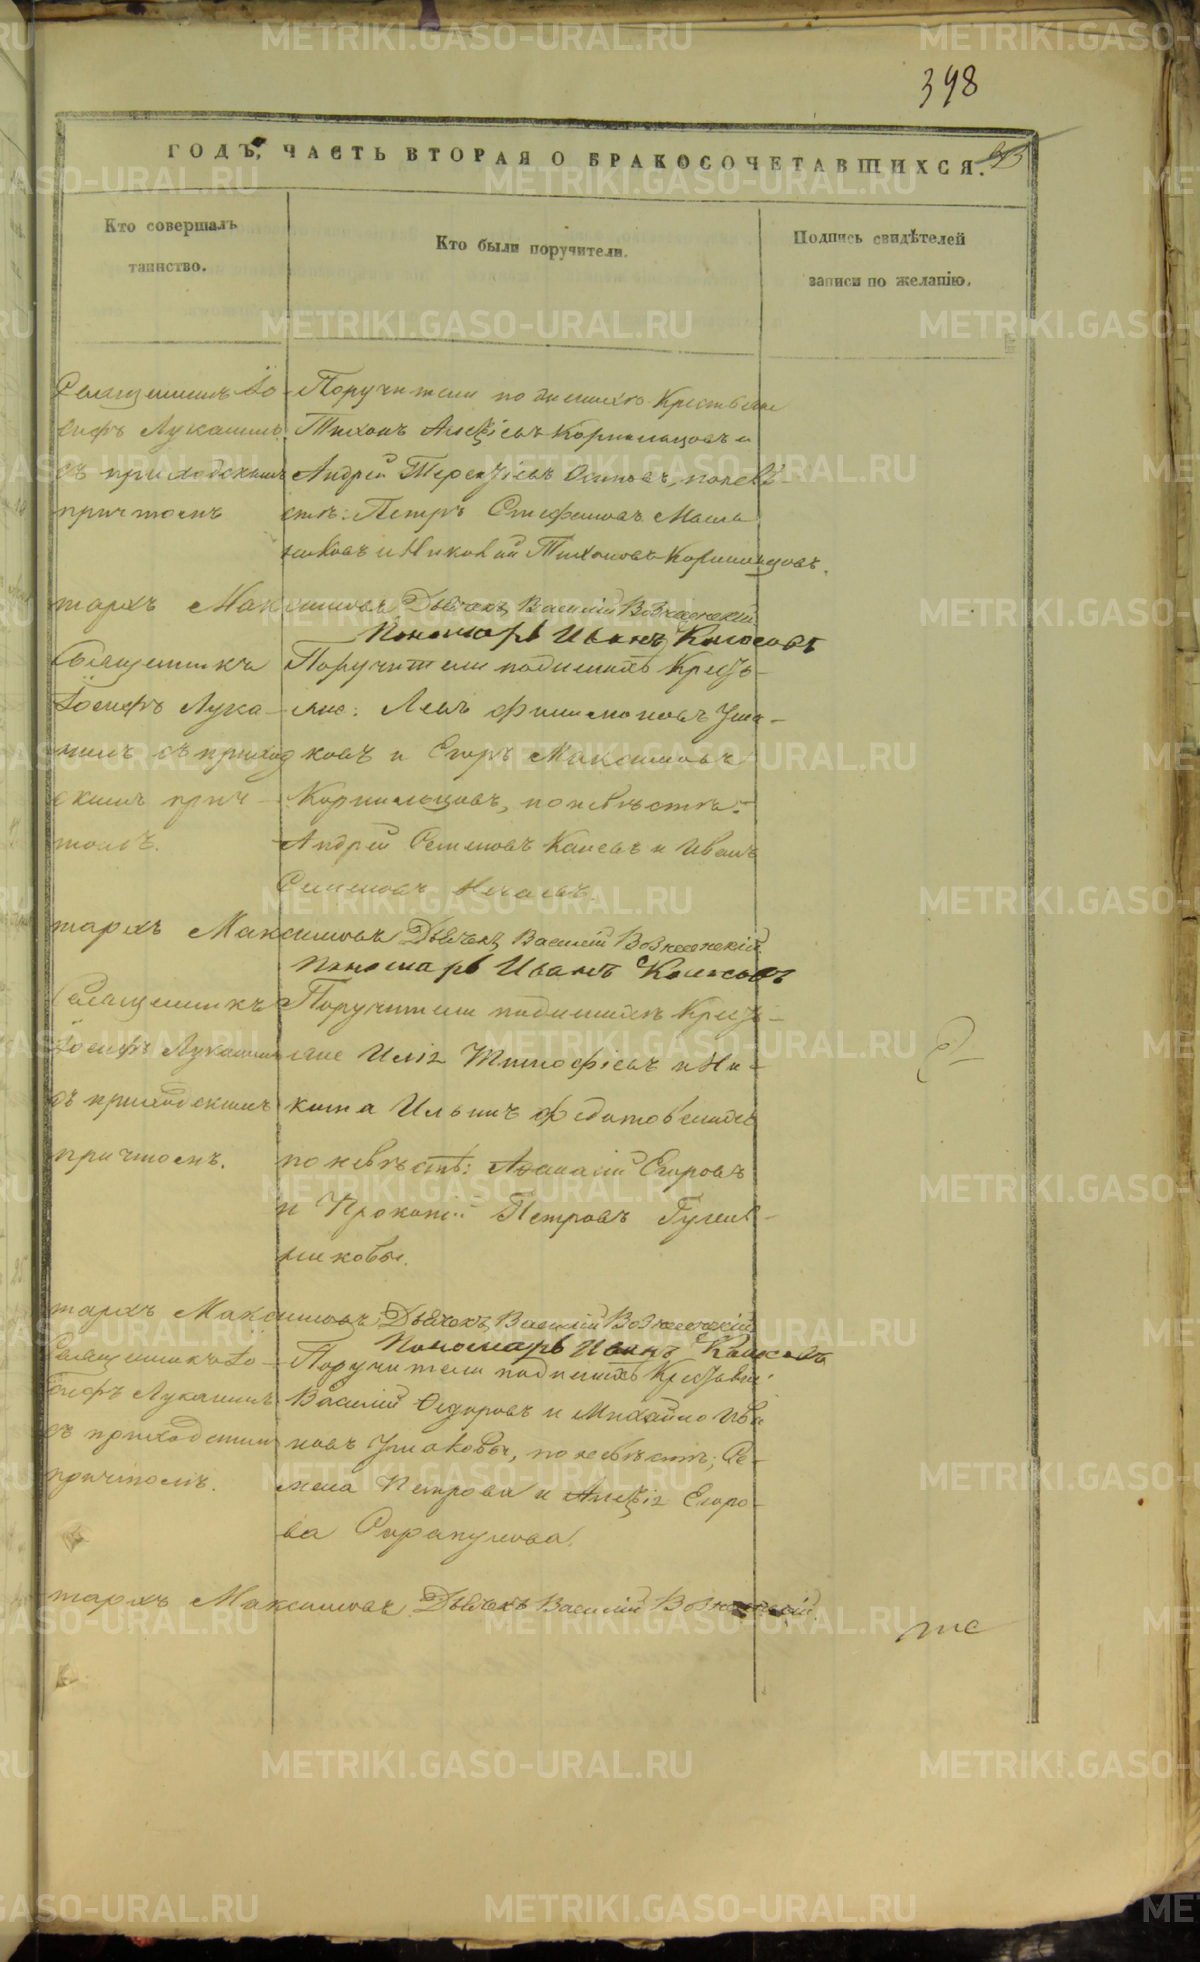 398
ГОДЪ, ЧАСТЬ ВТОРАЯ О БРАКОСОЧЕТАВШИХСЯ.
Кто совершалъ
таинство.
Кто были поручители.
Подпись свидѣтелей
записи по желанію.
Священникъ Іо-
сифъ Лукашинъ
съ приходскимъ
причтомъ
Поручители по женихѣ Крестьяне
Тихонъ Алексіевъ Корнильцовъ и
Андрей Терентіевъ Осиповъ, по невѣ-
стѣ: Петръ Стефановъ
и Николай Тихоновъ Корнильцовъ.
тархъ Максимовъ Дьячекъ Василій Вознесенскій
Пономарь Иванъ Колосовъ
Священникъ
Іосифъ Лука-
шинъ съ приход
скимъ прич-
томъ.
Поручители по женихѣ Кресть-
яне: Левъ Филимоновъ Уша-
ковъ и Егоръ Максимовъ
Корнильцовъ, по невѣстѣ:
Андрей Семеновъ и Иванъ
Семеновъ
тархъ Максимовъ Дьячекъ Василій Вознесенскій
Пономарь Иванъ Колосовъ
Священникъ
Іосифъ Лукашинъ
съ приходскимъ
причтомъ.
Поручители по женихѣ Кресть-
яне Илія Тимофіевъ и Ни-
кита Ильинъ
по невѣстѣ: Аѳанасій Егоровъ
и Прокопій Петровъ
тархъ Максимовъ Дьячекъ Василій Вознесенскій
Пономарь Иванъ Колосовъ
Священникъ Іо-
сифъ Лукашинъ
съ приходскимъ
причтомъ.
Поручители по женихѣ Крестьяне
Василій Ѳедоровъ и Михайло Ива
новъ Ушаковы, по невѣстѣ; Се-
мена Петрова и Алексія Егоро-
ва Сарапулова.
тархъ Максимовъ Дьячекъ Василій Вознесенскій.
METRIKI.GASO-URAL.RU